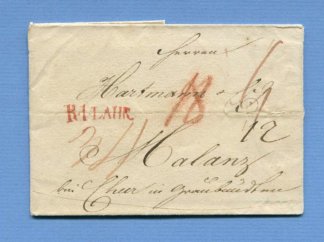 Herren
Hartmann
R.1.LAHR.
18
12
Malanz
bei Chur in Graubündten